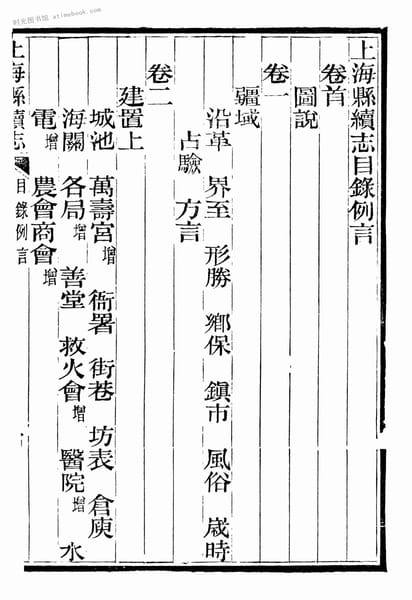 时光图书馆 · atimebook.com
上海縣續志目錄例言
卷首
圖說
卷一
疆域
沿革 界至 形勝 鄉保 鎭市 風俗 歲時
占驗 方言
卷二
建置上
城池 萬壽宮增 衙署 街巷 坊表 倉庾
海關增 各局增 善堂 救火會增 醫院增 水
電增 農會商會增
上海縣續志 目錄例言